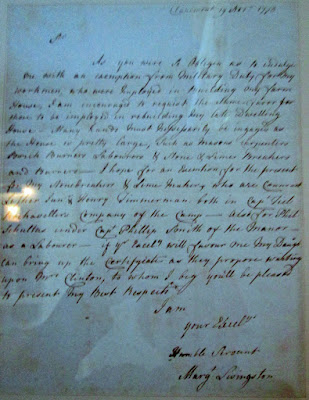 Clermont 19 Novr 1778
Sr
As you were so Obligeing as to indulge
me with an exemption from Military Duty, for my
workmen, who were Employed in building my farm
House, I am encouraged to request the same favor for
those to be employed in rebuilding my late Dwelling
House — Many hands must Necessarily be ingaged as
the House is pretty large, Such as Masons Carpenters
Brick Burners Labourers & Stone & Limes Breakers
and Burners — I hope for an Exemtion for the present
for my Stonebreakers & Lime makers, who are
& Henry Timmerman both in Capt Teil
Company of the Camp — also for Phil
Schultus under Capt Phillip Smith of the Manor —
as a Labourer — if yr Excelly will favour me My Daughtr
can bring up the Certificate as they propose waiting
upon Mrs Clinton, to whom I beg you'll be pleased
to present my Best Respects
I am
your Excellys
Humble Servant
Margt Livingston